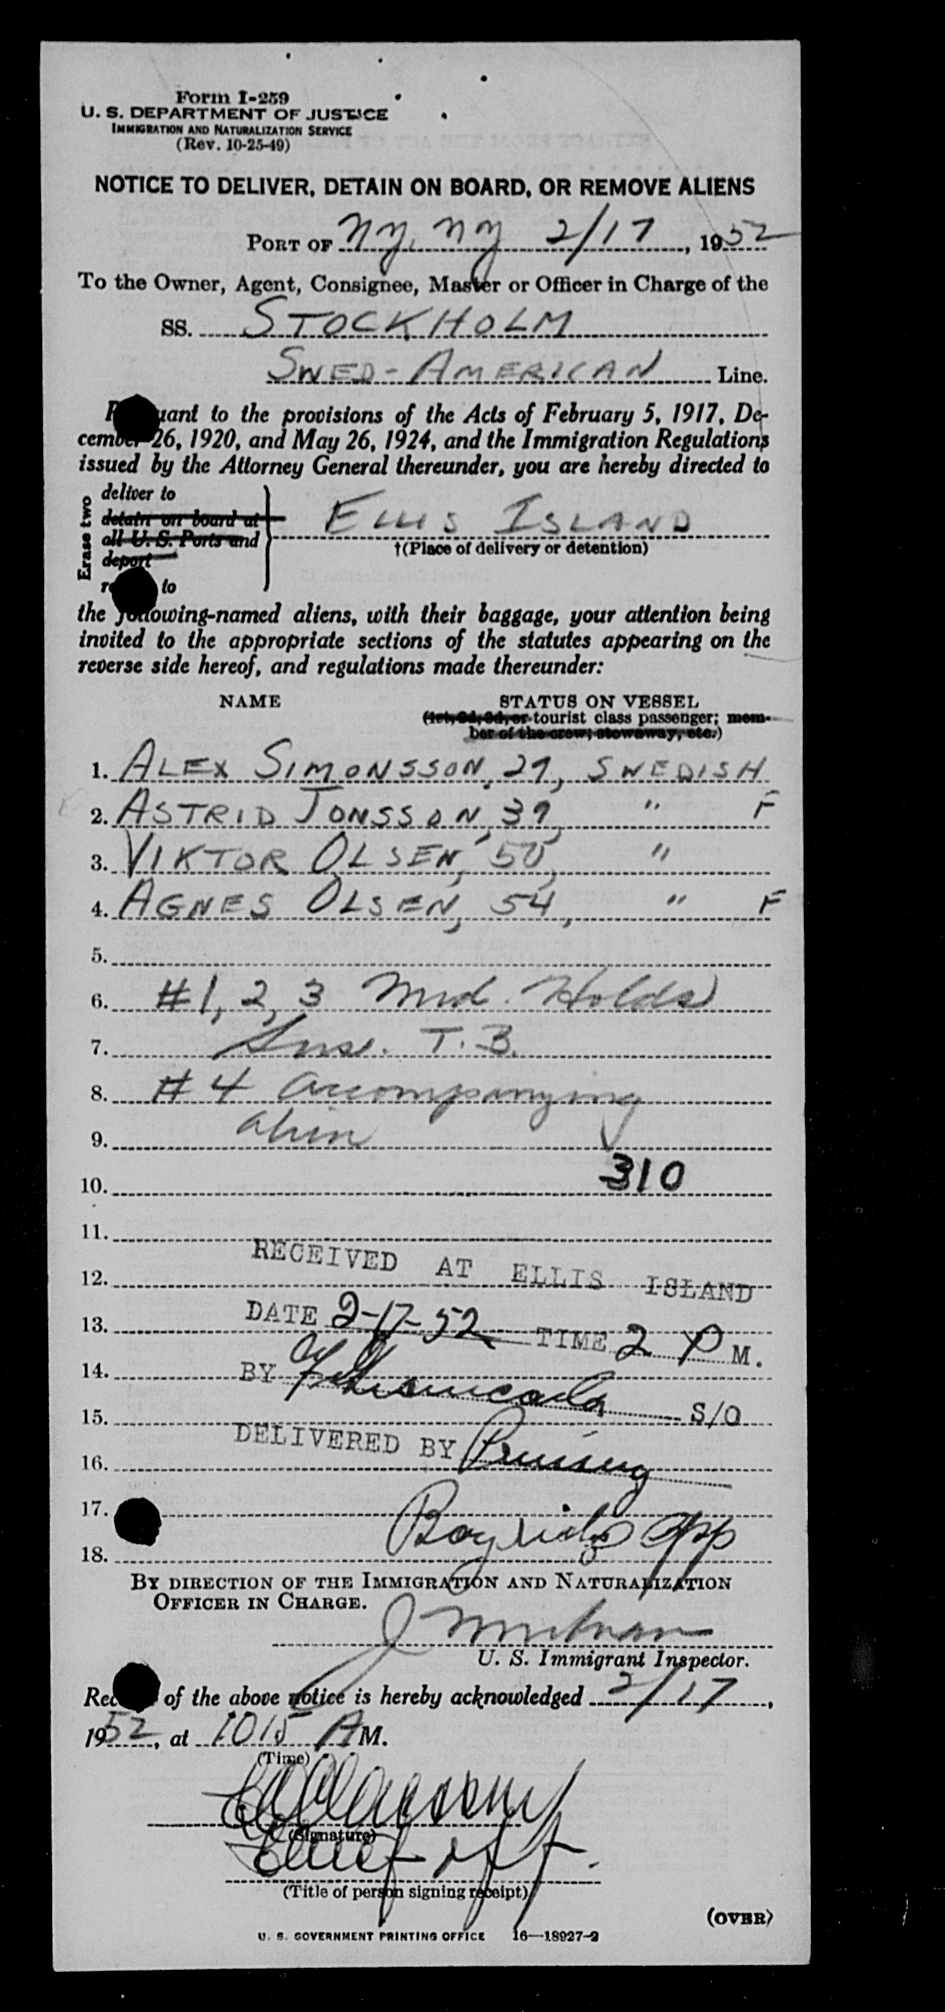 Form I-259
U. S. DEPARTMENT OF JUSTICE
IMMIGRATION AND NATURALIZATION SERVICE
(Rev. 10-25-49)
NOTICE TO DELIVER, DETAIN ON BOARD, OR REMOVE ALIENS
PORT OF NY, NY 2/17, 1952
To the Owner, Agent, Consignee, Master or Officer in Charge of the
SS. STOCKHOLM
SWED-AMERICAN Line.
Pursuant to the provisions of the Acts of February 5, 1917, De-
cember 26, 1920, and May 26, 1924, and the Immigration Regulations
issued by the Attorney General thereunder, you are hereby directed to
Erase two
deliver to
detain on board at
all U. S. Ports and
deport
to
ELLIS ISLAND
†(Place of delivery or detention)
the following-named aliens, with their baggage, your attention being
invited to the appropriate sections of the statutes appearing on the
reverse side hereof, and regulations made thereunder:
NAME STATUS ON VESSEL
(1st, 2d, 3d, or tourist class passenger; mem-
ber of the crew; stowaway, etc.)
1. ALEX SIMONSSON, 29, SWEDISH
2. ASTRID JONSSON, 39, " F
3. VIKTOR OLSEN, 50, "
4. AGNES OLSEN, 54, " F
5.
6. #1, 2, 3 Med. Holds
7. Sus. T.B.
8. #4 accompanying
9. alien
10. 310
11.
12. RECEIVED AT ELLIS ISLAND
13. DATE 2-17-52 TIME 2 P M.
14. BY
15. S/O
16. DELIVERED BY
17.
18.
BY DIRECTION OF THE IMMIGRATION AND NATURALIZATION
OFFICER IN CHARGE.
U. S. Immigrant Inspector.
Receipt of the above notice is hereby acknowledged 2/17,
1952, at 1015 AM.
(Time)
(Signature)
Chief Off.
(Title of person signing receipt)
(OVER)
U. S. GOVERNMENT PRINTING OFFICE 16—18927-2